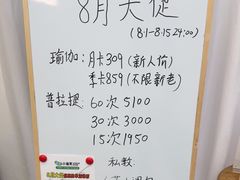 8月大促
(8.1-8.15 24:00)
瑜伽: 月卡309 (新人价)
季卡859 (不限新老)
普拉提: 60次 5100
30次 3000
15次 1950
私教: